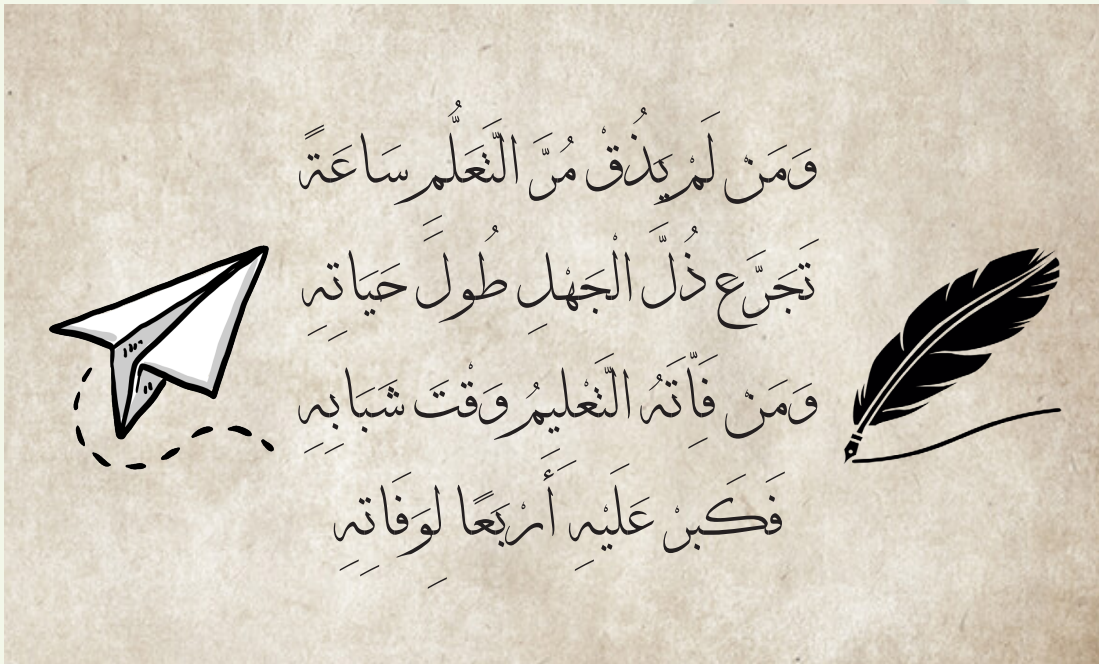 وَمَنْ لَمْ يَذُقْ مُرَّ التَّعَلُّمِ سَاعَةً
تَجَرَّعَ ذُلَّ الْجَهْلِ طُولَ حَيَاتِهِ
وَمَنْ فَاتَهُ التَّعْلِيمُ وَقْتَ شَبَابِهِ
فَكَبِّرْ عَلَيْهِ أَرْبَعًا لِوَفَاتِهِ